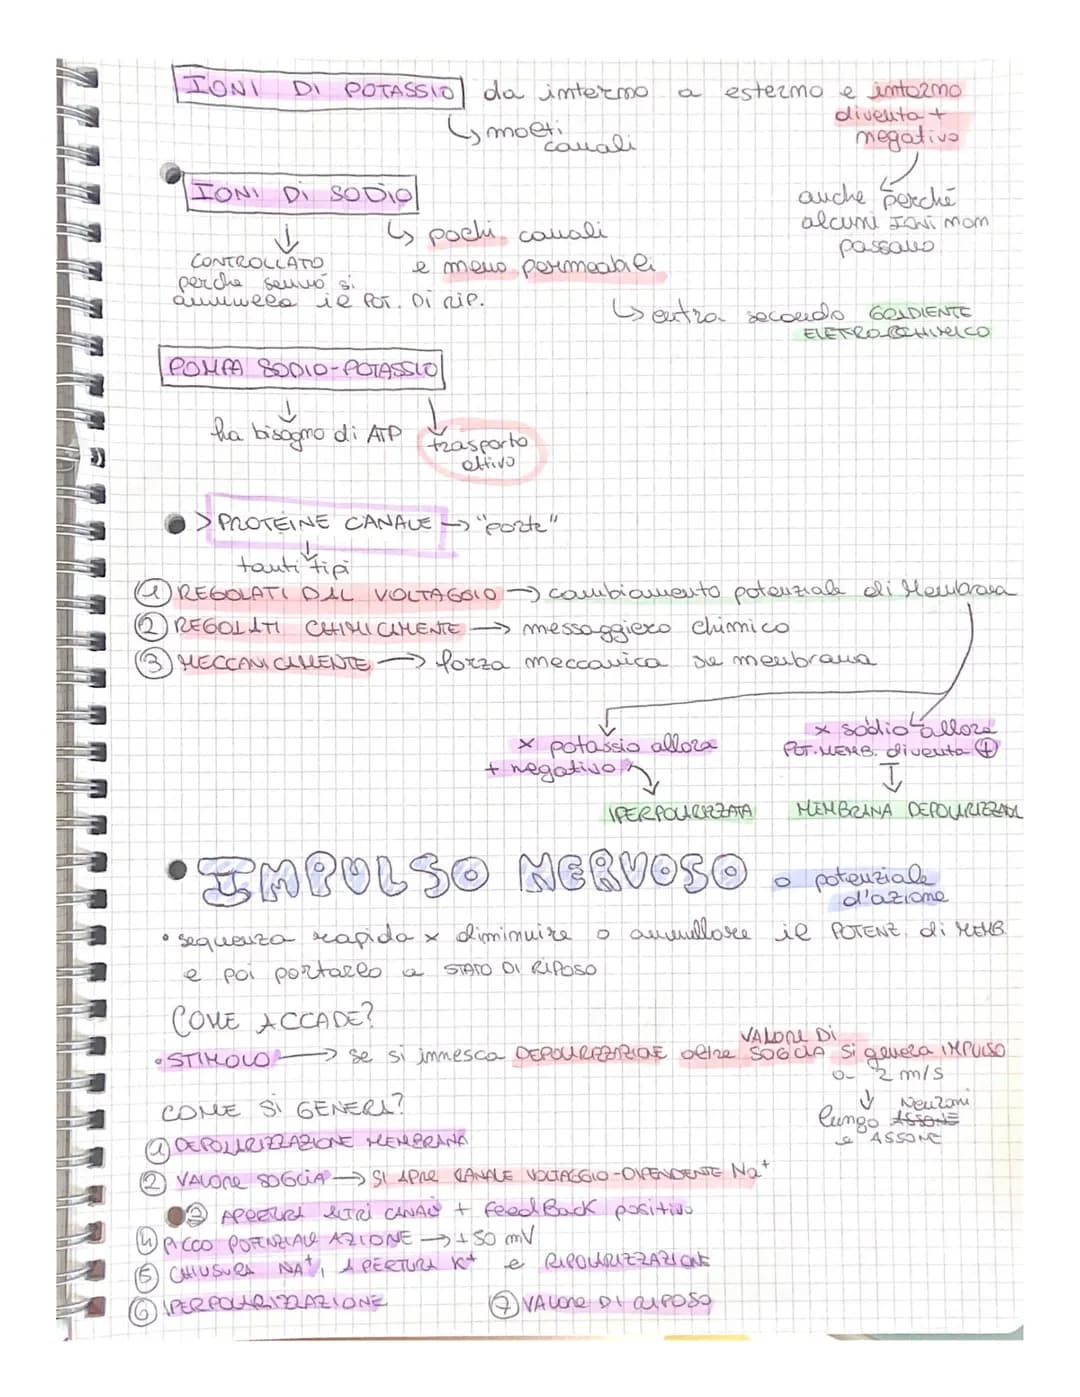 IONI DI POTASSIO da interno a esterno e interno
diventa +
negativo
↳ molti
canali
anche perché
alcuni IONI non
passano
IONI DI SODIO
↳ pochi canali
e meno permeabili
CONTROLLATO
perché sennò si
annulla il POT. DI RIP.
↳ entra secondo GRADIENTE
ELETTROCHIMICO
POMPA SODIO-POTASSIO
ha bisogno di ATP
trasporto
attivo
> PROTEINE CANALE → "porte"
tanti tipi
1 REGOLATI DAL VOLTAGGIO → cambiamento potenziale di Membrana
2 REGOLATI CHIMICAMENTE → messaggiero chimico
3 MECCANICAMENTE → forza meccanica su membrana
x potassio allora
+ negativo
IPERPOLARIZZATA
x sodio allora
POT. MEMB. diventa +
MEMBRANA DEPOLARIZZATA
• IMPULSO NERVOSO o potenziale
d'azione
• sequenza rapida x diminuire o annullare il POTENZ. di MEMB.
e poi portarlo a STATO DI RIPOSO
COME ACCADE?
• STIMOLO → se si innesca DEPOLARIZZAZIONE oltre VALORE DI SOGLIA si genera IMPULSO
a 2 m/s
↓ Neuroni
lungo ASSONE
e ASSONE
COME SI GENERA?
1 DEPOLARIZZAZIONE MEMBRANA
2 VALORE SOGLIA → SI APRE CANALE VOLTAGGIO-DIPENDENTE Na⁺
3 APERTURA ALTRI CANALI + FeedBack positivo
4 PICCO POTENZIALE AZIONE → +50 mV
5 CHIUSURA NA⁺, APERTURA K⁺ e RIPOLARIZZAZIONE
6 IPERPOLARIZZAZIONE 7 VALORE DI RIPOSO